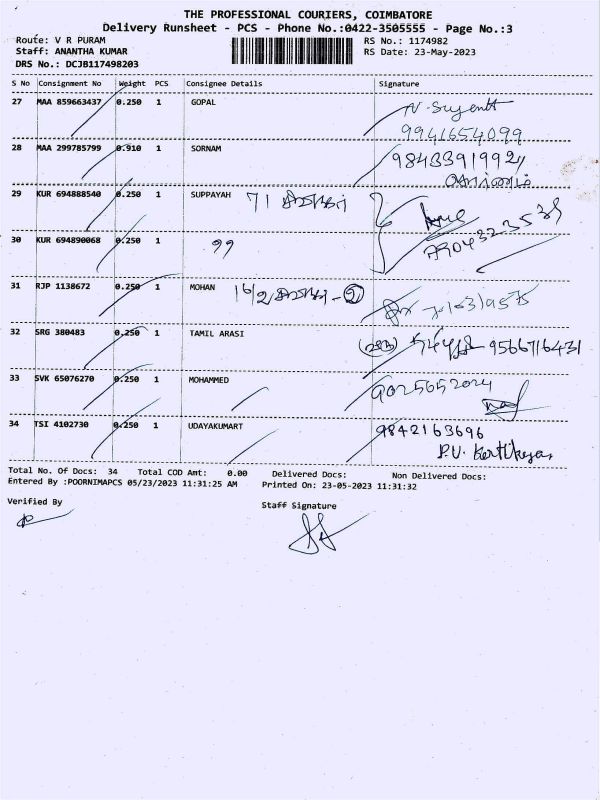 THE PROFESSIONAL COURIERS, COIMBATORE
Delivery Runsheet - PCS - Phone No.:0422-3505555 - Page No.:3
Route: V R PURAM RS No.: 1174982
Staff: ANANTHA KUMAR RS Date: 23-May-2023
DRS No.: DCJB117498203
S No Consignment No Weight PCS Consignee Details Signature
27 MAA 859663437 0.250 1 GOPAL N. Sujenth
9941654099
28 MAA 299785799 0.910 1 SORNAM 9843391992
சொர்ணம்
29 KUR 694888540 0.250 1 SUPPAYAH 71
30 KUR 694890068 0.250 1 "
31 RJP 1138672 0.250 1 MOHAN 16/2
32 SRG 380483 0.250 1 TAMIL ARASI 9566716431
33 SVK 65076270 0.250 1 MOHAMMED 9025652024
34 TSI 4102730 0.250 1 UDAYAKUMART 9842163696
P.U. Kertikeyan
Total No. Of Docs: 34 Total COD Amt: 0.00 Delivered Docs: Non Delivered Docs:
Entered By :POORNIMAPCS 05/23/2023 11:31:25 AM Printed On: 23-05-2023 11:31:32
Verified By Staff Signature